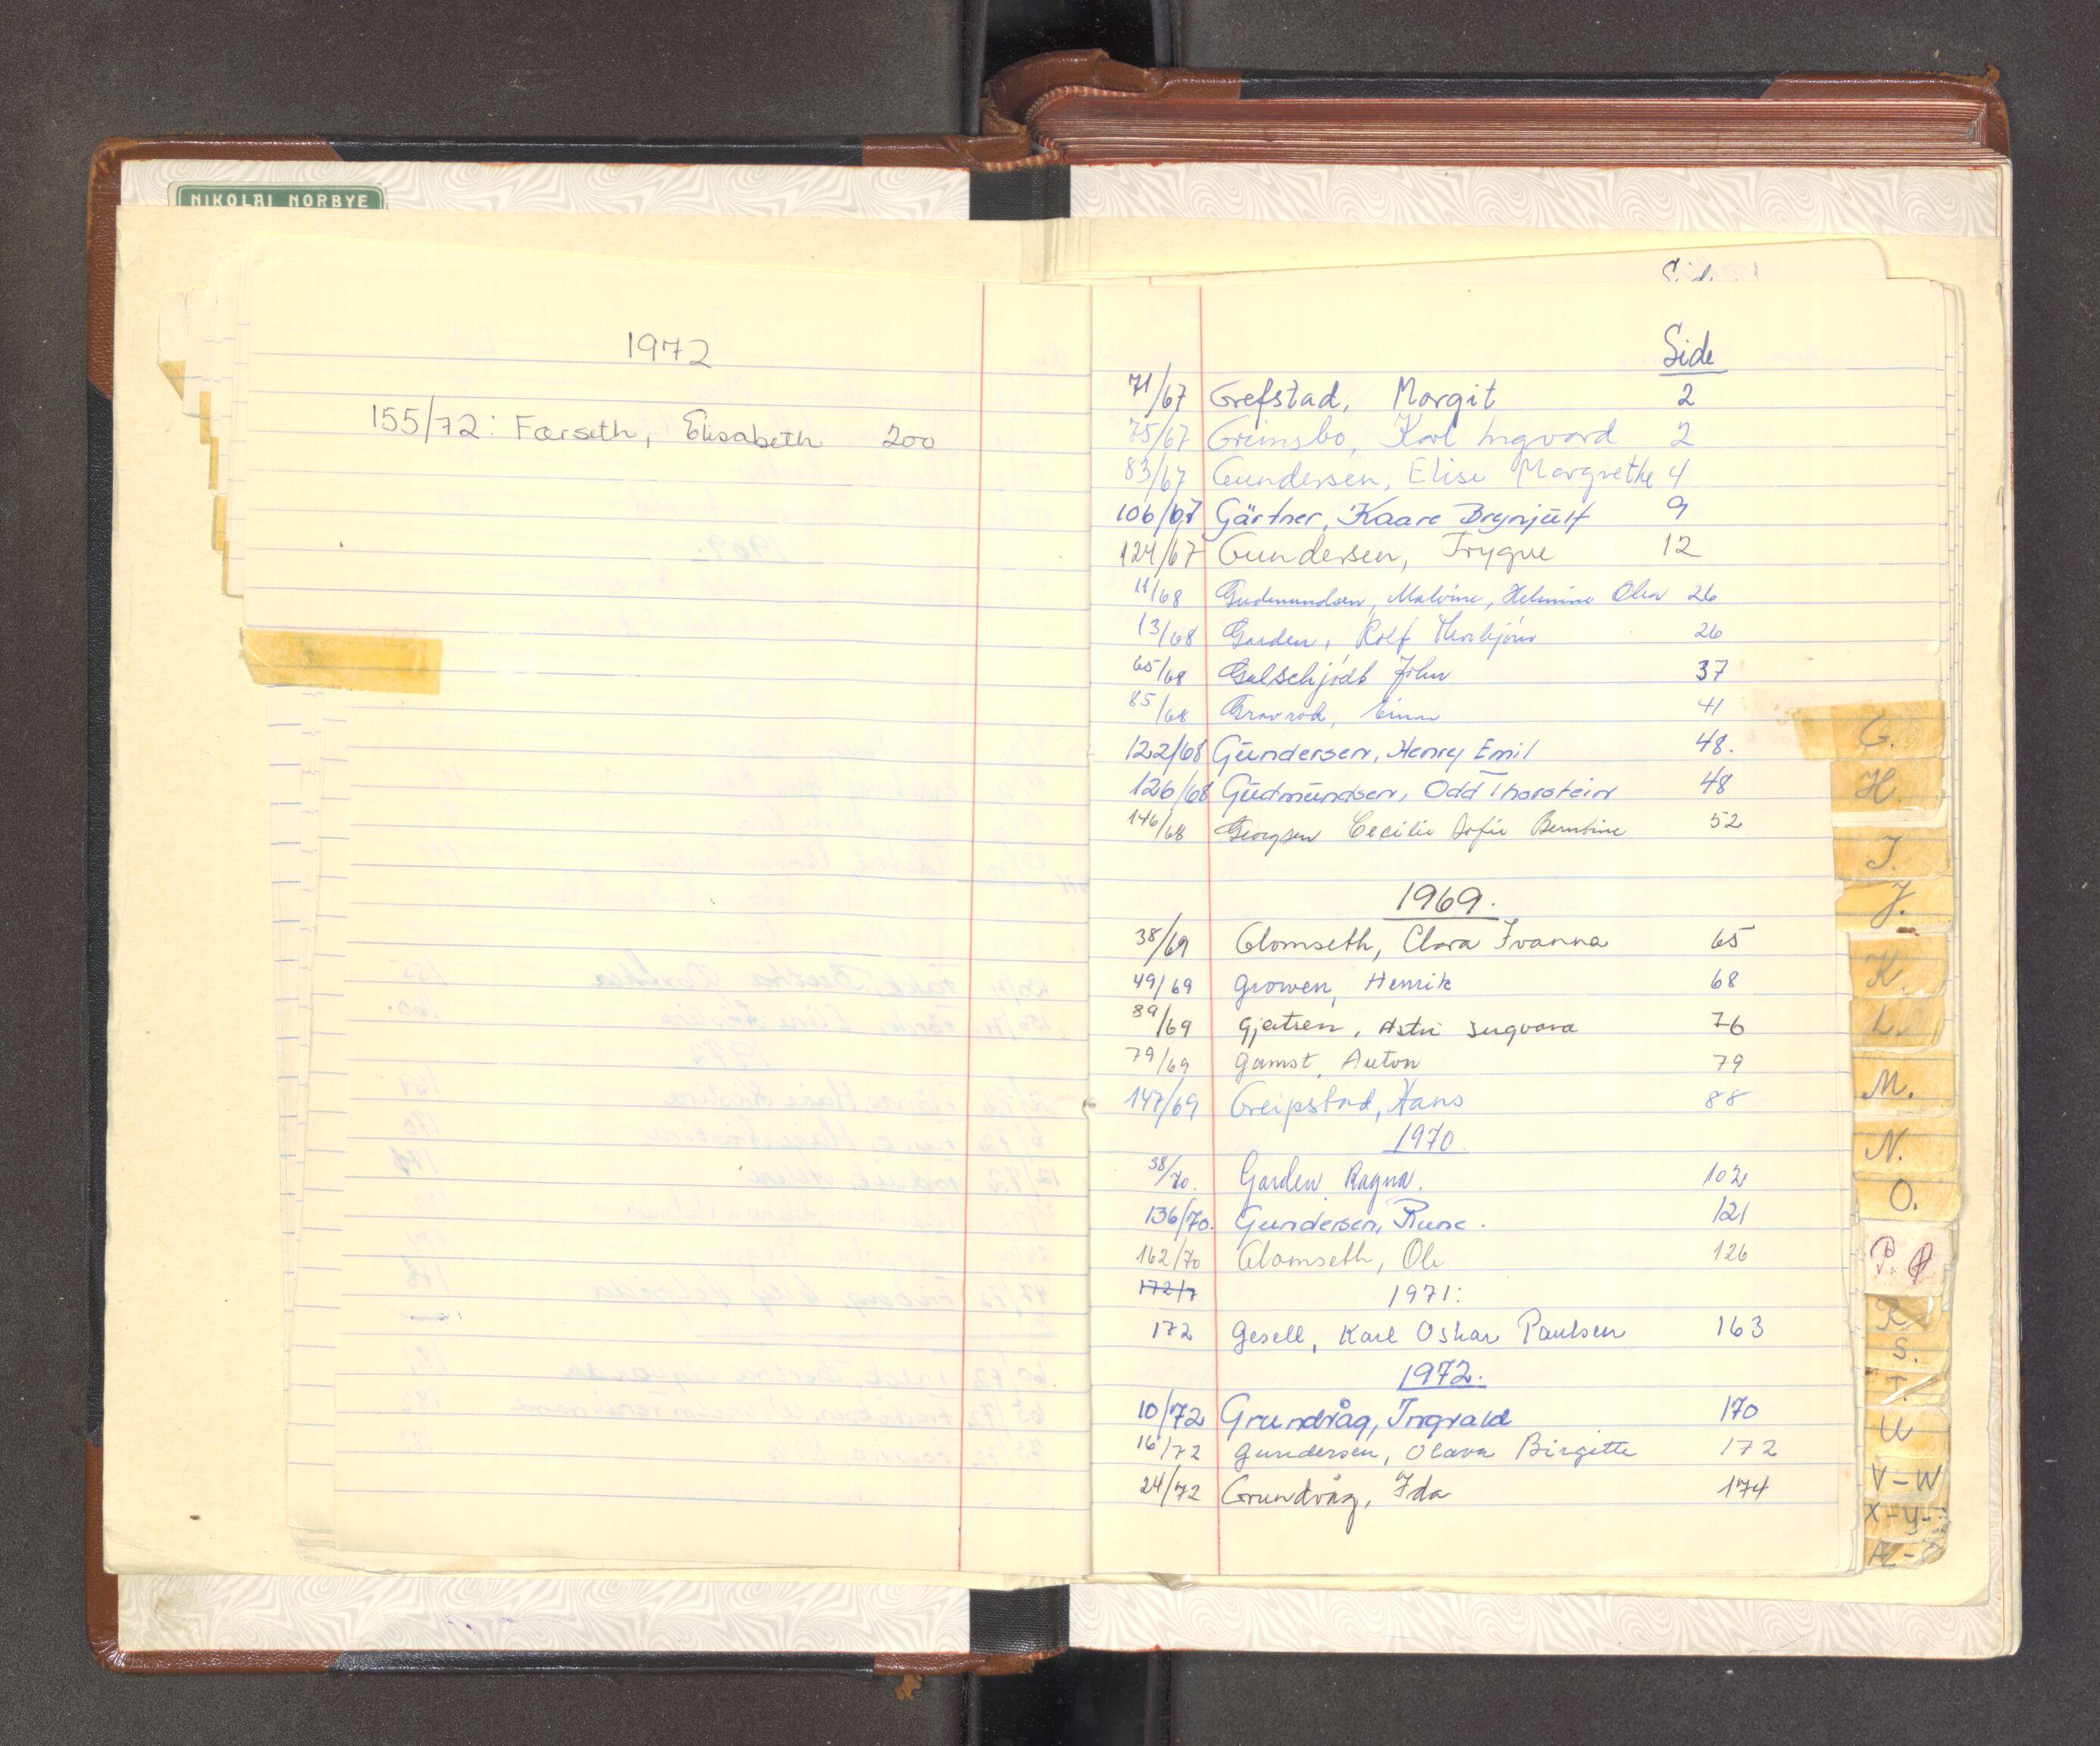 NIKOLAI NORBYE
1972
155/72: Færseth, Elisabeth 200
Side
71/67 Grefstad, Margit 2
75/67 Grimsbo, Karl Ingvard 2
83/67 Gundersen, Elise Margrethe 4
106/67 Gärtner, Kaare Brynjulf 9
124/67 Gundersen, Trygve 12
11/68 Gudmundsen, Malvine, Helmine Olea 26
13/68 Garden, Rolf Thorbjörn 26
65/68 Galschjödt John 37
85/68 Gravrok, Einar 41
122/68 Gundersen, Henry Emil 48.
126/68 Gudmundsen, Odd Thorstein 48
146/68 Georgsen Cecilie Sofie Berntine 52
1969.
38/69 Glomseth, Clara Ivanna 65
49/69 Growen, Henrik 68
89/69 Gjertsen, Astri Ingvara 76
79/69 Gamst, Anton 79
147/69 Greipstad, Hans 88
1970.
38/70. Garden Ragna. 102
136/70. Gundersen, Rune. 121
162/70 Glomseth, Ole 126
172/7 1971:
172 Gesell, Karl Oskar Paulsen 163
1972.
10/72 Grundvåg, Ingvald 170
16/72 Gundersen, Olava Birgitte 172
24/72 Grundvåg, Ida 174
G.
H.
I.
J.
K.
L.
M.
N.
O.
P.
R
S.
T.
U
V-W
X-Y-